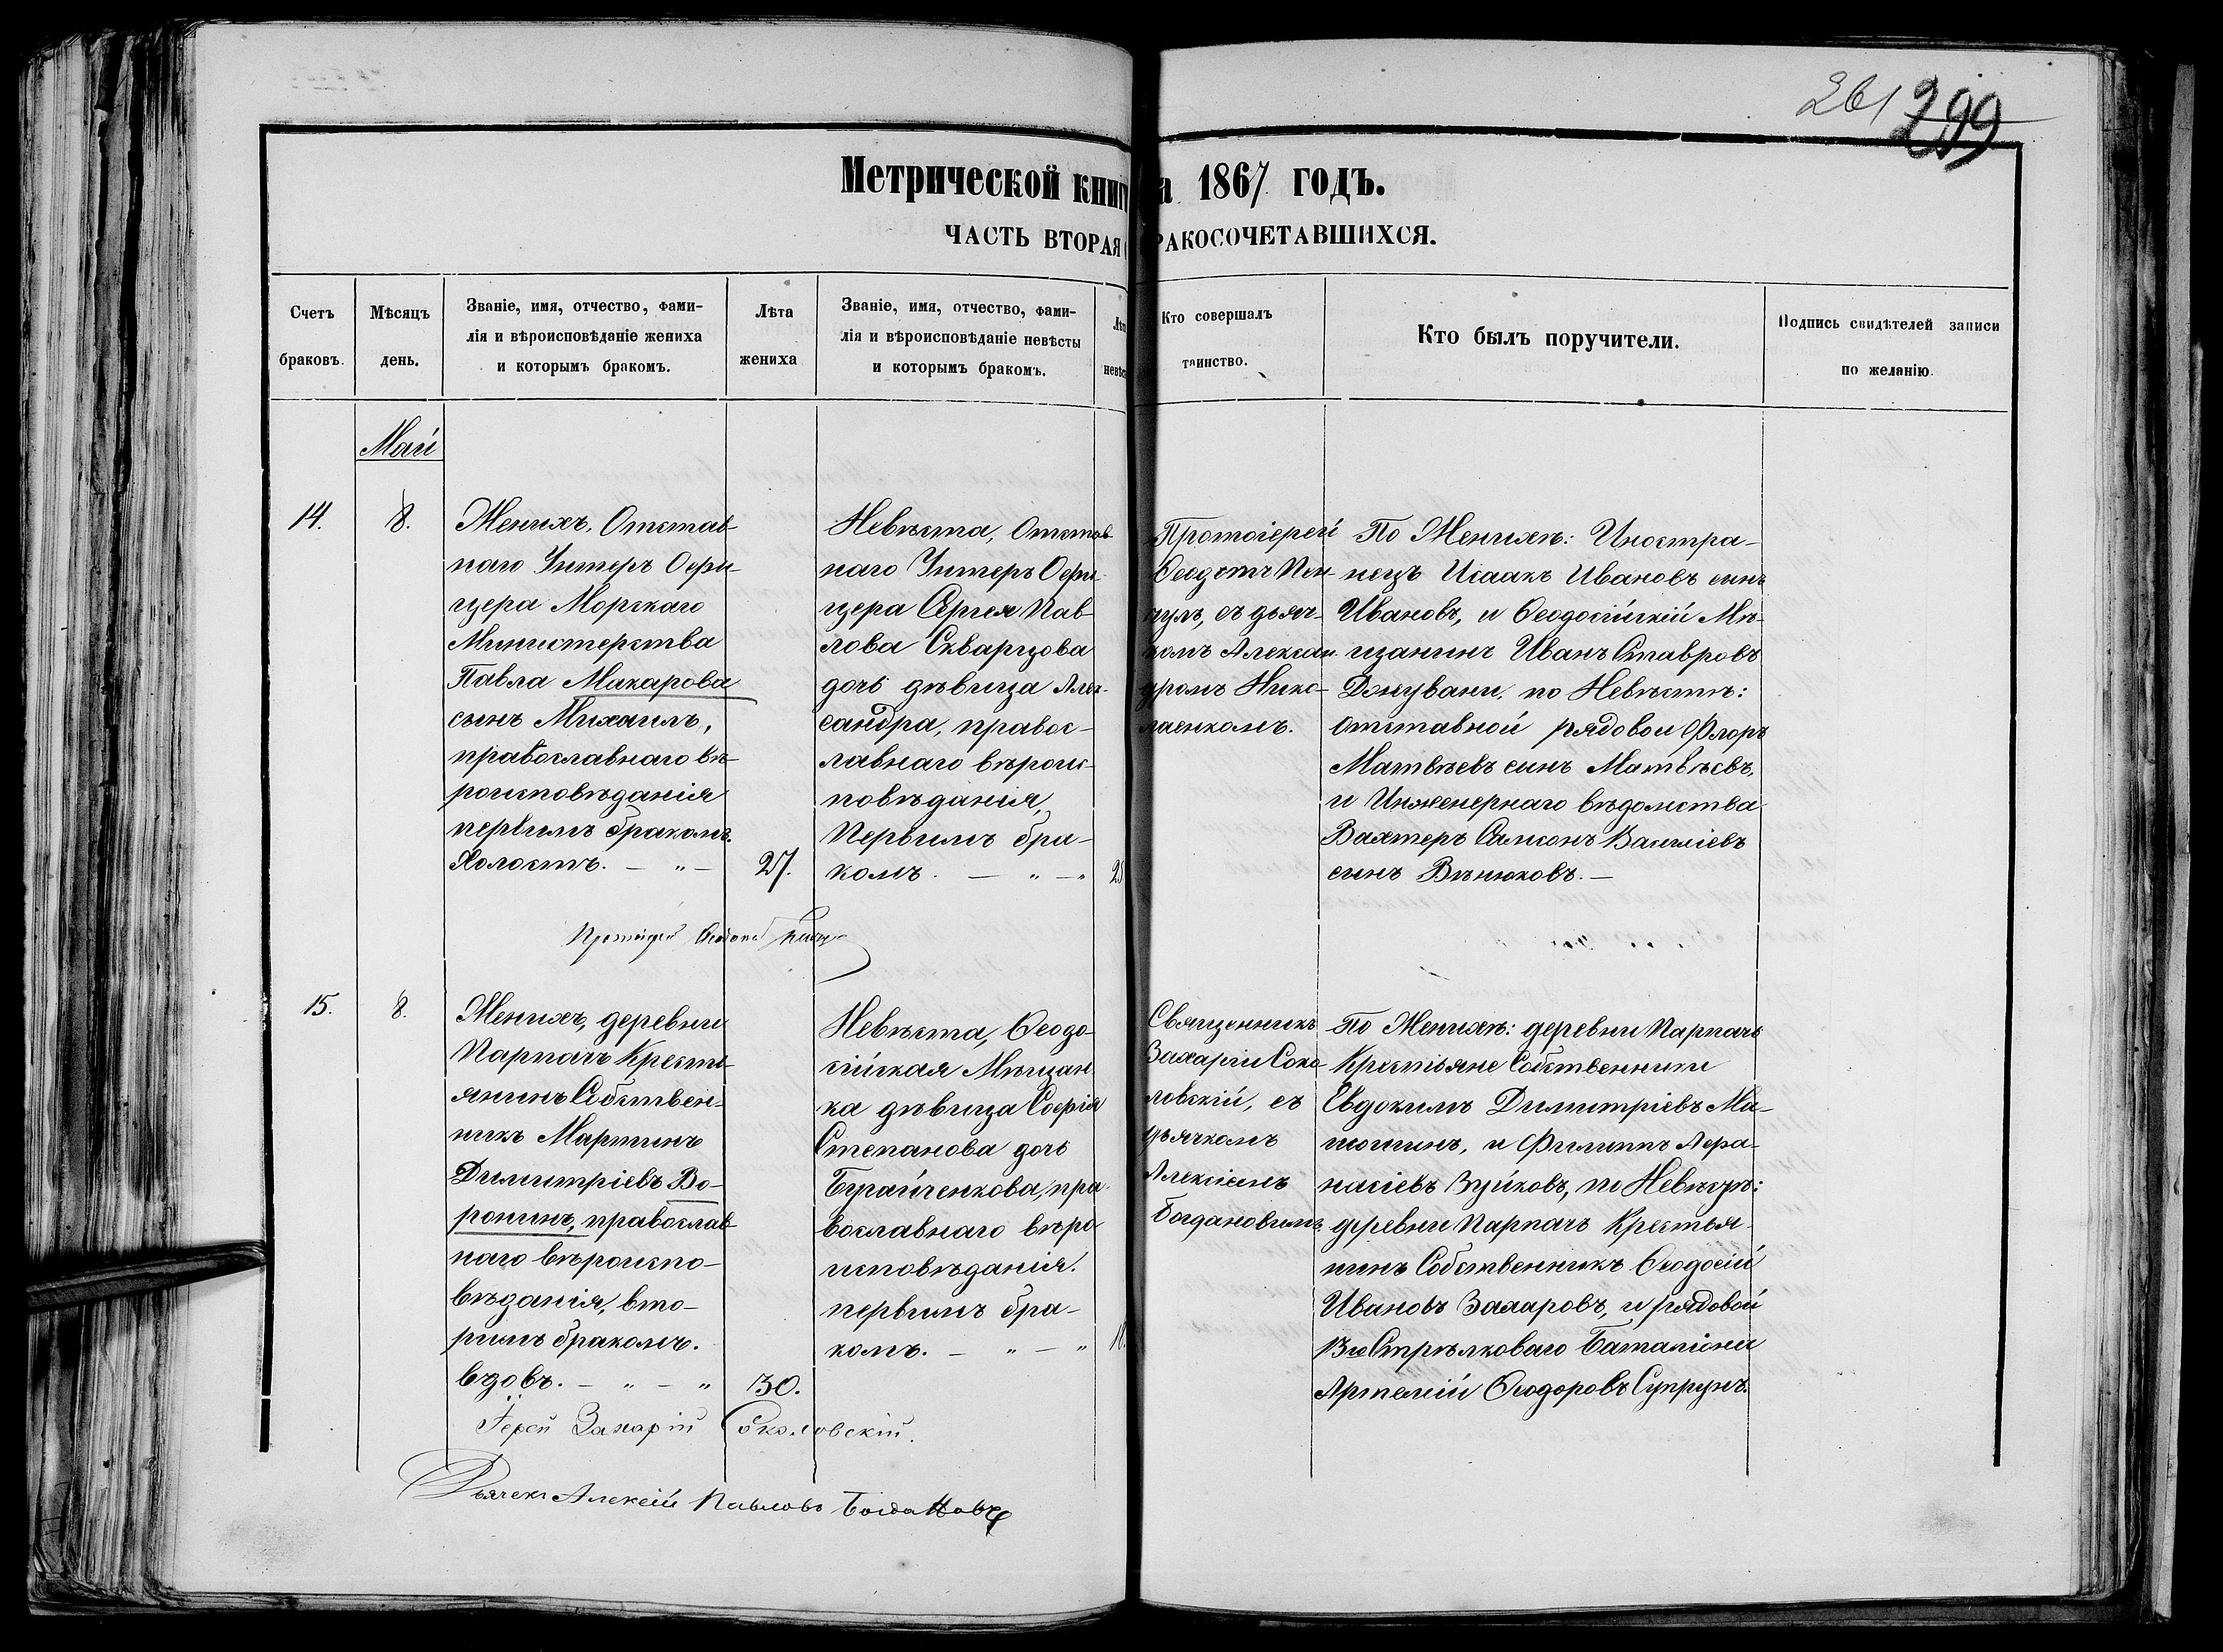 261 299
Метрической книг
а 1867 годъ.
ЧАСТЬ ВТОРАЯ
РАКОСОЧЕТАВШИХСЯ.
Счетъ
браковъ.
Мѣсяцъ
день.
Званіе, имя, отчество, фами-
лія и вѣроисповѣданіе жениха
и которымъ бракомъ.
Лѣта
жениха
Званіе, имя, отчество, фами-
лія и вѣроисповѣданіе невѣсты
и которымъ бракомъ.
Лѣт
невѣс
Кто совершалъ
таинство.
Кто былъ поручители.
Подпись свидѣтелей записи
по желанію.
Май
14.
8.
Женихъ, Отстав-
наго Унтеръ Офи-
цера Морскаго
Министерства
Павла Макарова
сынъ Михаилъ,
православнаго вѣ-
роисповѣданія
первымъ бракомъ.
Холостъ. — „ —
27.
Невѣста, Отстав
наго Унтеръ Офи-
цера Сергея Пав-
лова Скварцова
дочь дѣвица Алек-
сандра, правос-
лавнаго вѣроис-
повѣданія,
Первымъ бра-
комъ. — „ — „
25
Протоіерей
Ѳеодотъ
съ дьяч-
комъ Алексан
дромъ Нико-
лаенкомъ.
По Женихѣ: Иностра-
нецъ Исаакъ Ивановъ сынъ
Ивановъ, и Ѳеодосійскій Мѣ-
щанинъ Иванъ Ставровъ
по Невѣстѣ:
отставной рядовои Флоръ
Матвѣевъ сынъ Матвѣевъ,
и Инженернаго вѣдомства
Вахтеръ Самсонъ Василіевъ
сынъ Вѣнюковъ. —
15.
8.
Женихъ, деревни
Парпачъ Кресть-
янинъ Собствен-
никъ Мартинъ
Димитріевъ Во-
ронинъ, православ
наго вѣроиспо-
вѣданія, вто-
рымъ бракомъ.
вдовъ. — „ — „
30.
Невѣста, Ѳеодо-
сійская Мѣщан
ка дѣвица Софія
Степанова дочь
пра
вославнаго вѣро
исповѣданія.
первымъ бра-
комъ. — „ — „
18.
Священникъ
Захарій Соко-
ловскій, съ
дьячкомъ
Алексіемъ
Богдановымъ.
По Женихѣ: деревни Парпачъ
Крестьяне Собственники
Евдокимъ Димитріевъ Ма-
тюшинъ, и Филиппъ Аѳа-
насіевъ Зуйковъ, по Невѣстѣ:
деревни Парпачъ Крестья-
нинъ Собственникъ Ѳеодосій
Ивановъ Захаровъ, и рядовой
Стрѣлковаго Баталіона
Артемій Ѳеодоровъ Супрунъ.
Іерей Захарій Соколовскій.
Дьячекъ Алексій Павловъ Богдановъ